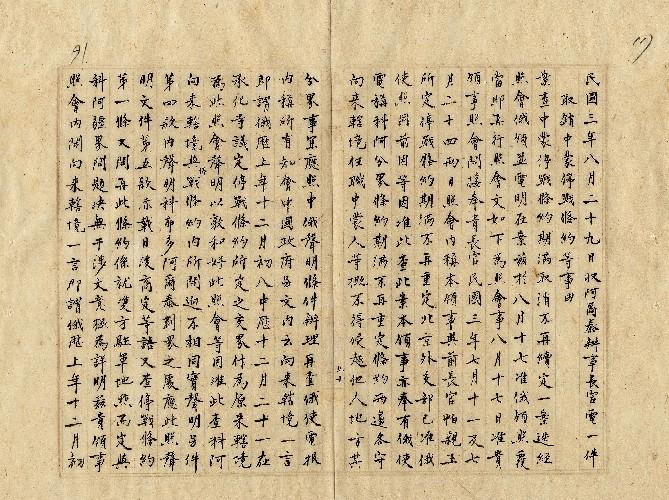 民國三年八月二十九日收阿爾泰辦事長官電一件
取銷中蒙停戰條約等事由
業查中蒙停戰條約期滿取消不再續定一案迭經
照會俄領並電明在案茲於八月十七准俄領照覆
當即再行照會文如下為照會事八月十七日准貴
領事照會開接奉貴長官民國三年七月十一及七
月二十四兩日照會內稱本領事與前長官帕親王
所定停戰條約期滿不再重定此京外交部已准俄
使照開前因等因准此查此案本領事亦奉有俄使
電稱科阿分界條約期滿不再重定條約兩邊各守
向來轄境任職中蒙人等概不得侵越他人地方其
分界事宜應照中俄聲明條件辦理再查俄使電報
內稱所有知會中國政府各文內云向來轄境一言
即謂俄歷上年十二月初八中歷十二月二十一在
承化寺議定停戰條約所定之交界作為原來轄境
為此照會聲明以敦和好此照會等因准此查科阿
向來轄境與停戰條約內所開迥不相同實聲明另件
第四款內聲明科布多阿爾泰劃界之處應此照聲
明文件第五款示載日後商定等語又查停戰條約
第一條文開再此條約係就雙方駐軍地點而定與
科阿疆界問題決無干涉文責極為詳明茲貴領事
照會內開向來轄境一言即謂俄歷上年十二月初